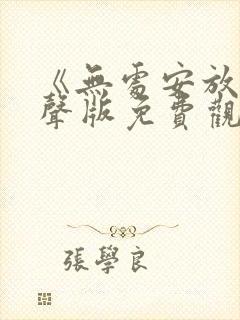 《無處安放
聲版免費觀
張學良